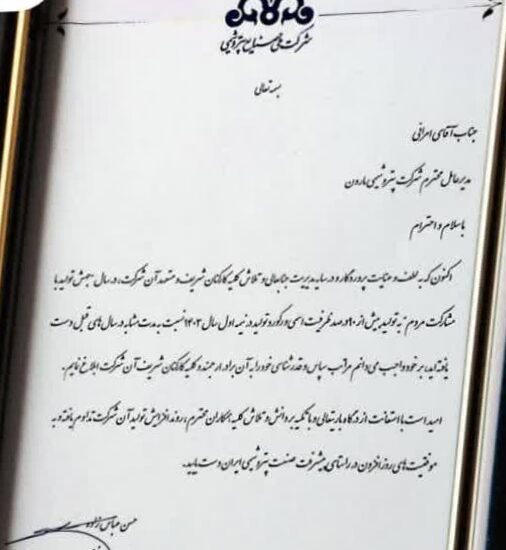 شرکت ملی صنایع پتروشیمی
بسمه تعالی
جناب آقای امرانی
مدیرعامل محترم شرکت پتروشیمی مارون
باسلام و احترام
اکنون که به لطف و عنایت پروردگار و در سایه مدیریت جنابعالی و تلاش کلیه کارکنان شریف و متعهد آن شرکت، در سال "جهش تولید با
مشارکت مردم" به تولید بیش از ۹۰ درصد ظرفیت اسمی و رکورد تولید در نیمه اول سال ۱۴۰۳ نسبت به مدت مشابه در سال های قبل دست
یافته اید، بر خود واجب می دانم مراتب سپاس و قدرشناسی خود را به آن برادر ارجمند و کلیه کارکنان شریف آن شرکت ابلاغ نمایم.
امید است با استعانت از درگاه باریتعالی و با تکیه بر دانش و تلاش کلیه همکاران محترم، روند افزایش تولید آن شرکت تداوم یافته و به
موفقیت های روزافزون در راستای پیشرفت صنعت پتروشیمی ایران دست یابید.
حسن عباس زاده